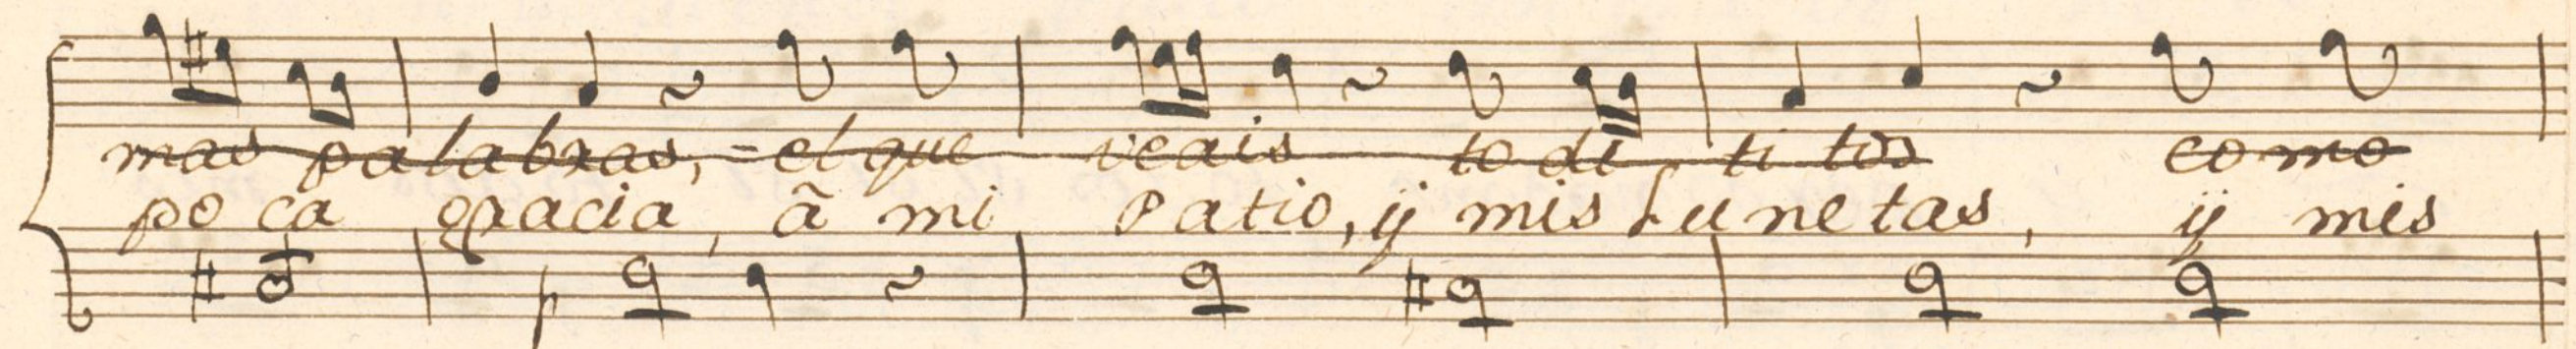 mas palabras, = el que veais todititos como
poca gracia, ã mi Patio, ÿ mis Lunetas, ÿ mis
p